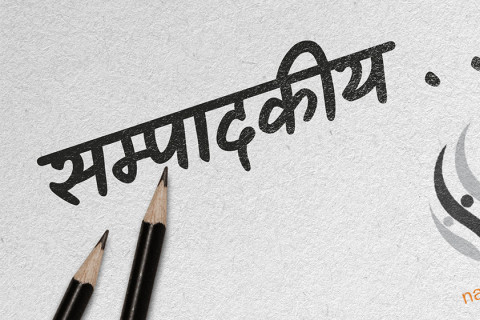 सम्पादकीय . .
na